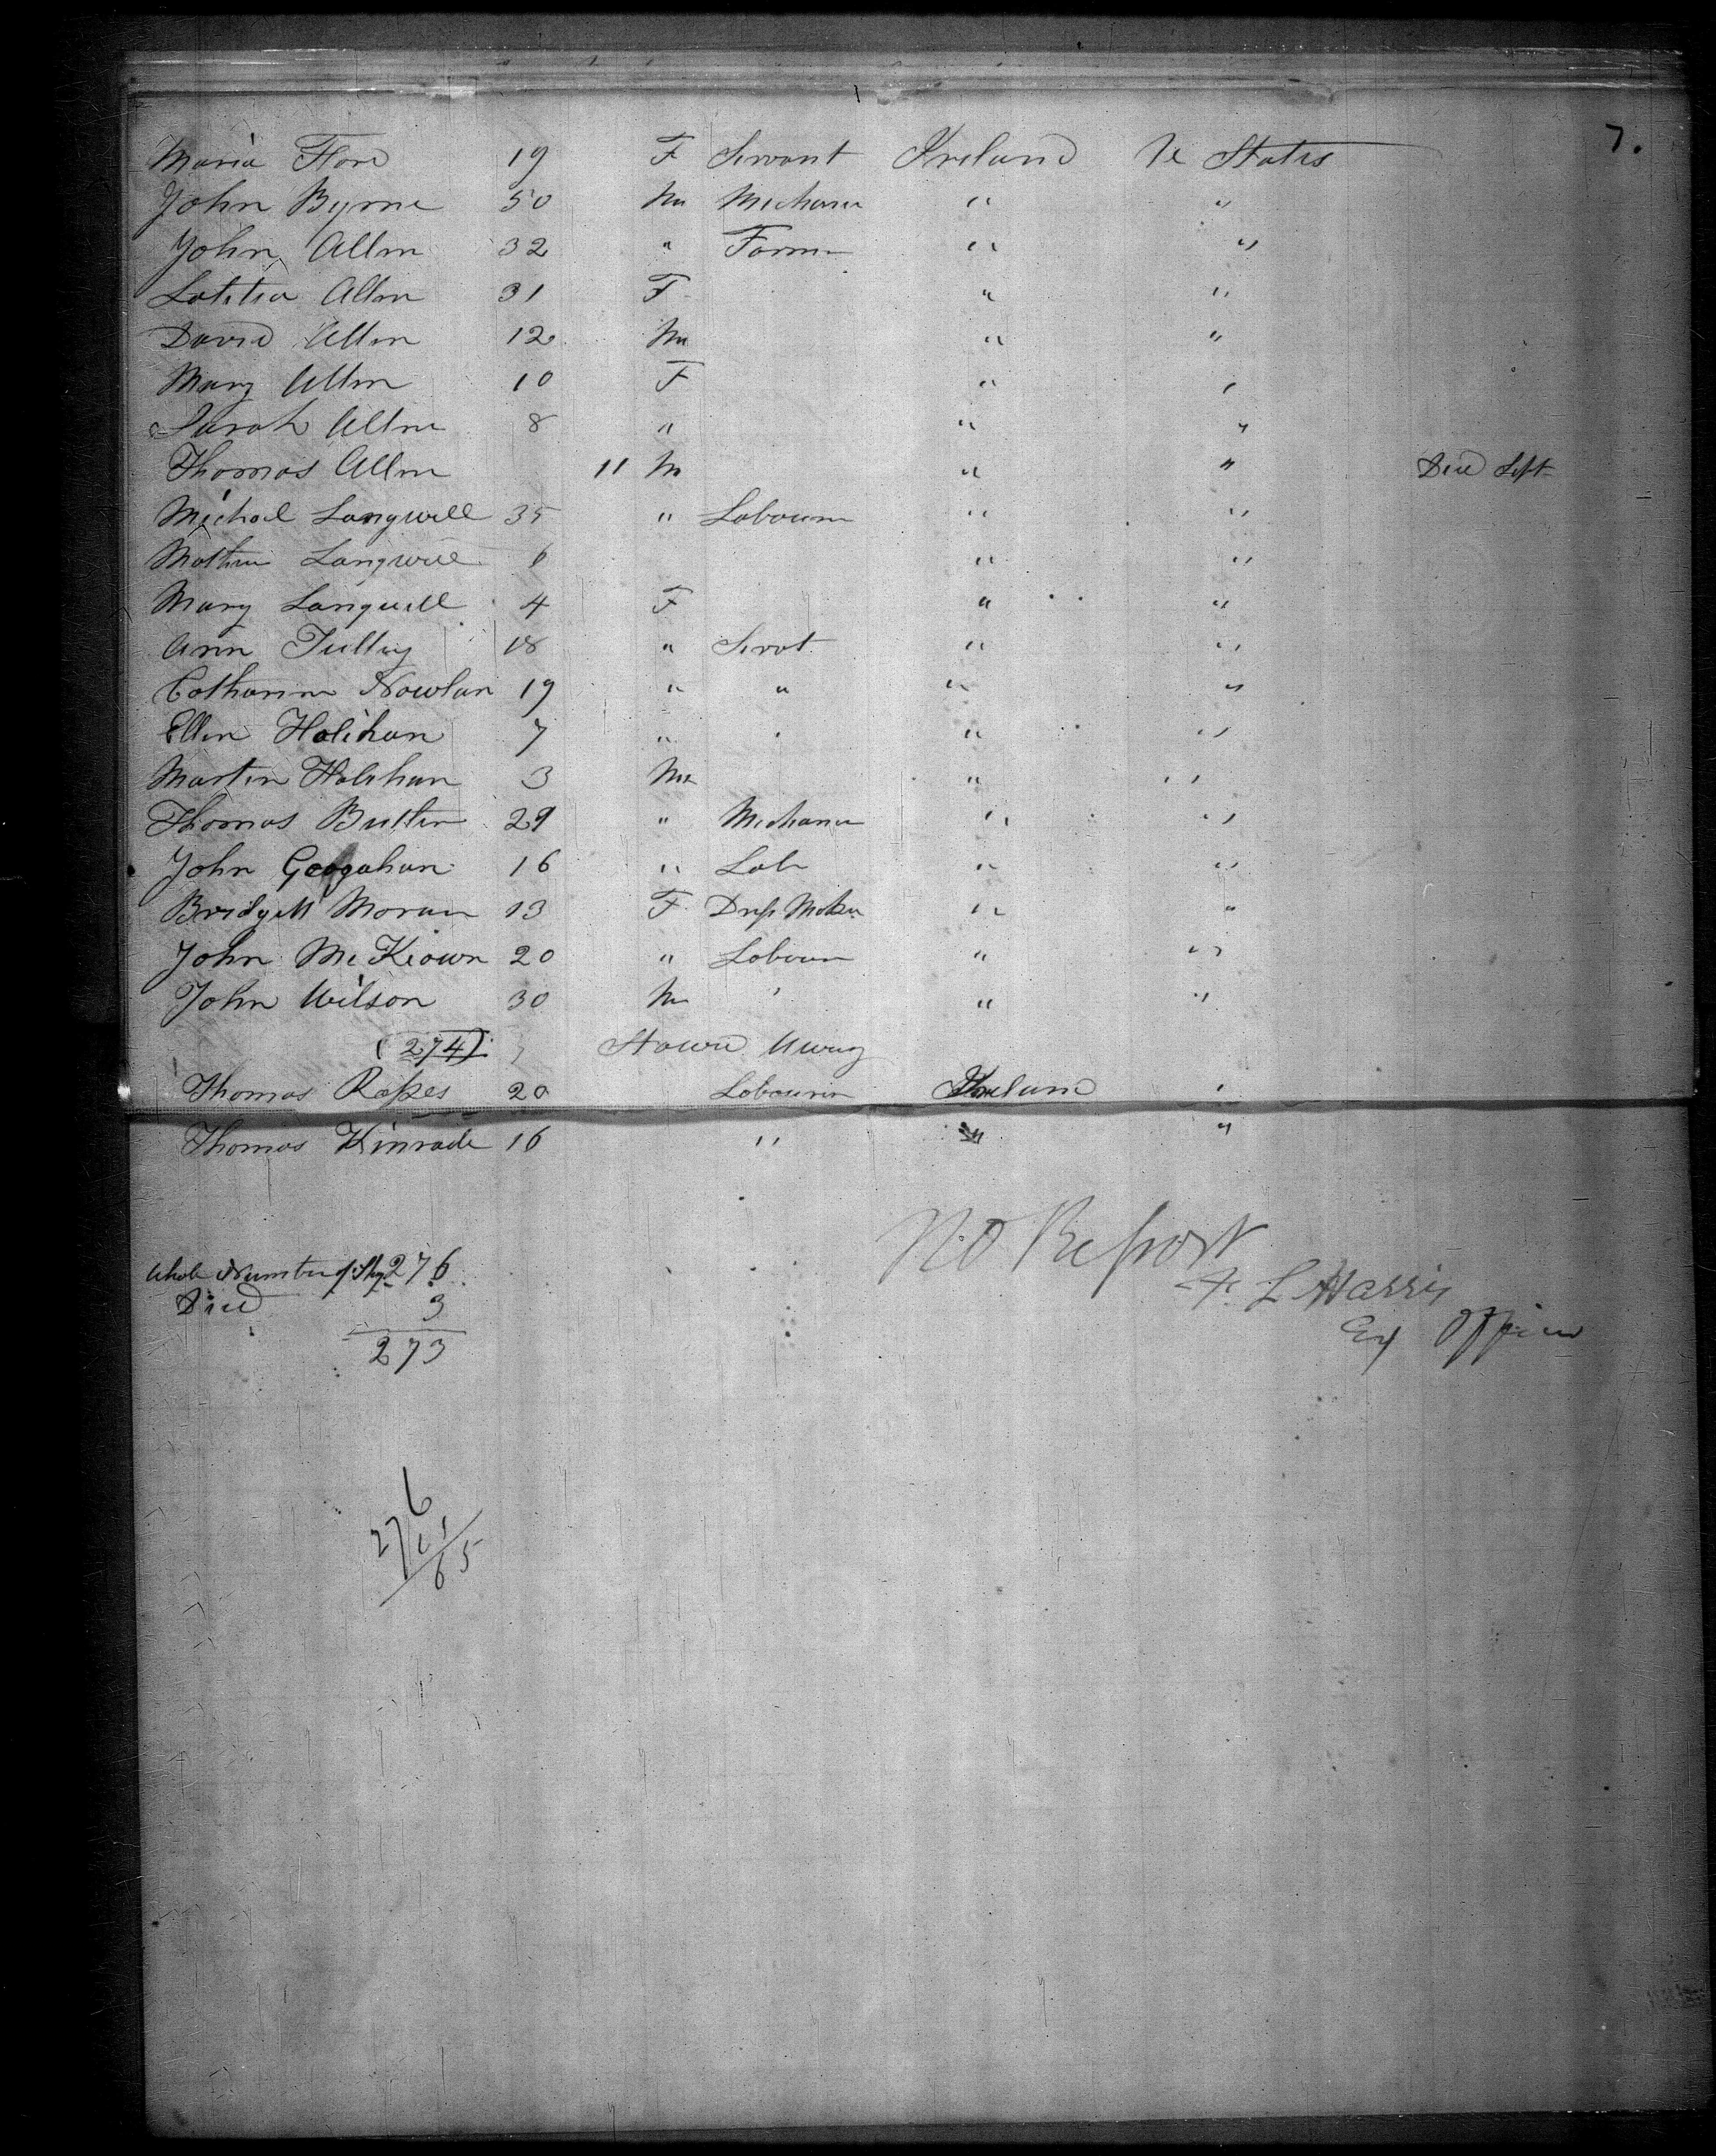 7.
Maria Flood 19 F Servant Ireland U States
John Byrne 50 M Mechanic " "
John Allen 32 " Farmer " "
Letitia Allen 31 F " "
David Allen 12 M " "
Mary Allen 10 F " "
Sarah Allen 8 " " "
Thomas Allen 11 M " " Died Sept
Michael Langwill 35 " Labourer " "
Mathew Langwill 6 " "
Mary Langwill 4 F " "
Ann Tulley 18 " Servt " "
Catharine Nowlan 19 " " " "
Ellen Holihan 7 " " "
Martin Holihan 3 M " "
Thomas Butler 29 " Mechanic " "
John Geogahan 16 " Lab " "
Bridgett Moran 13 F Dress Maker " "
John McKeown 20 " Labourer " "
John Wilson 30 M ' " "
(274) Stowed Away
Thomas Rapes 20 Labourer Ireland "
Thomas Kinrade 16 " " "
No Report
Whole Number of Shp 276
F. L Harris
Died 3
Ex Officer
273
276
11
65